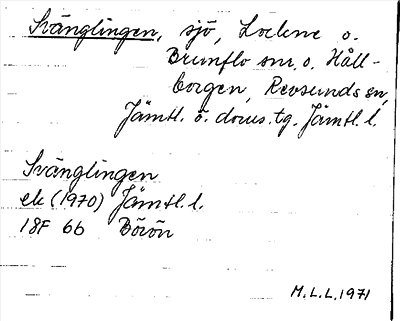 Svänglingen, sjö, Lockne o.
Brunflo snr. o. Håll-
borgen, Revsunds sn,
Jämtl. ö. doms.tg. Jämtl. l.
Svänglingen
ek (1970) Jämtl. l.
18F 6b Börön
M.L.L. 1971